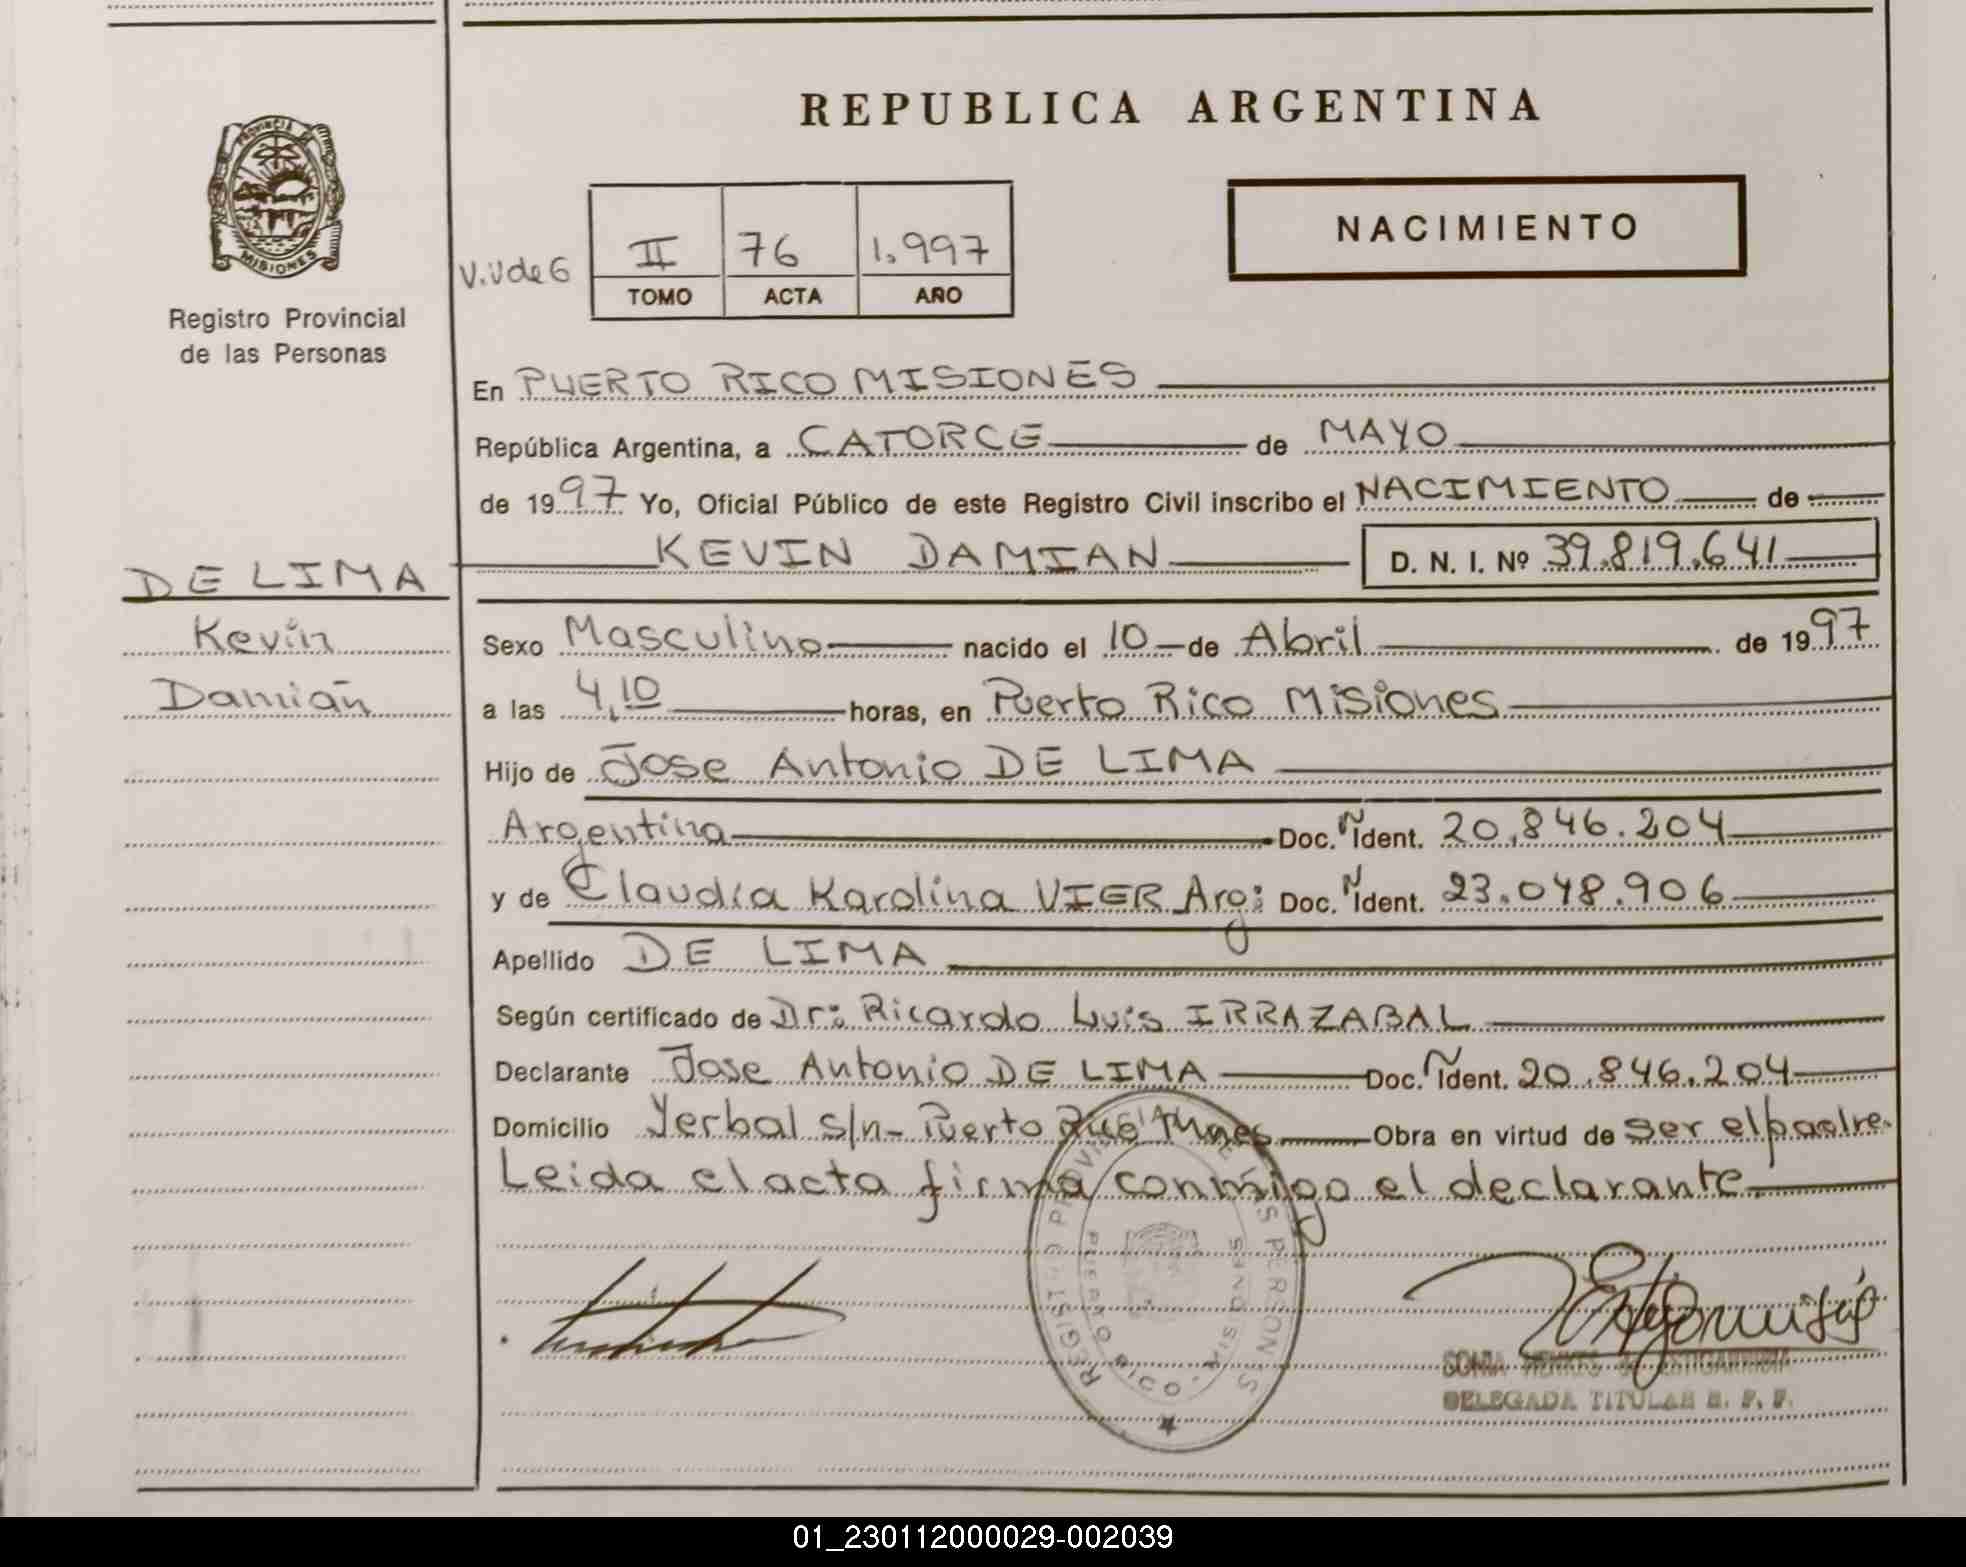 REPUBLICA ARGENTINA
PROVINCIA DE
MISIONES
Registro Provincial
de las Personas
NACIMIENTO
II 76 1.997
TOMO ACTA AÑO
En PUERTO RICO MISIONES
República Argentina, a CATORCE de MAYO
de 1997 Yo, Oficial Público de este Registro Civil inscribo el NACIMIENTO de
KEVIN DAMIAN D. N. I. Nº 39.819.641
DE LIMA
Kevin
Damián
Sexo Masculino nacido el 10 de Abril de 1997
a las 4,10 horas, en Puerto Rico Misiones
Hijo de Jose Antonio DE LIMA
Argentina Doc. Ident. 20.846.204
y de Claudia Karolina VIER Arg: Doc. Ident. 23.048.906
Apellido DE LIMA
Según certificado de Dr: Ricardo Luis IRRAZABAL
Declarante Jose Antonio DE LIMA Doc. Ident. 20.846.204
Domicilio Yerbal s/n- Puerto Rico Mnes Obra en virtud de ser el padre.
Leida el acta firma conmigo el declarante.
REGISTRO PROVINCIAL DE LAS PERSONAS
PUERTO RICO - MISIONES
SONIA DE ESTIGARRIBIA
DELEGADA TITULAR R. P. P.
01_230112000029-002039